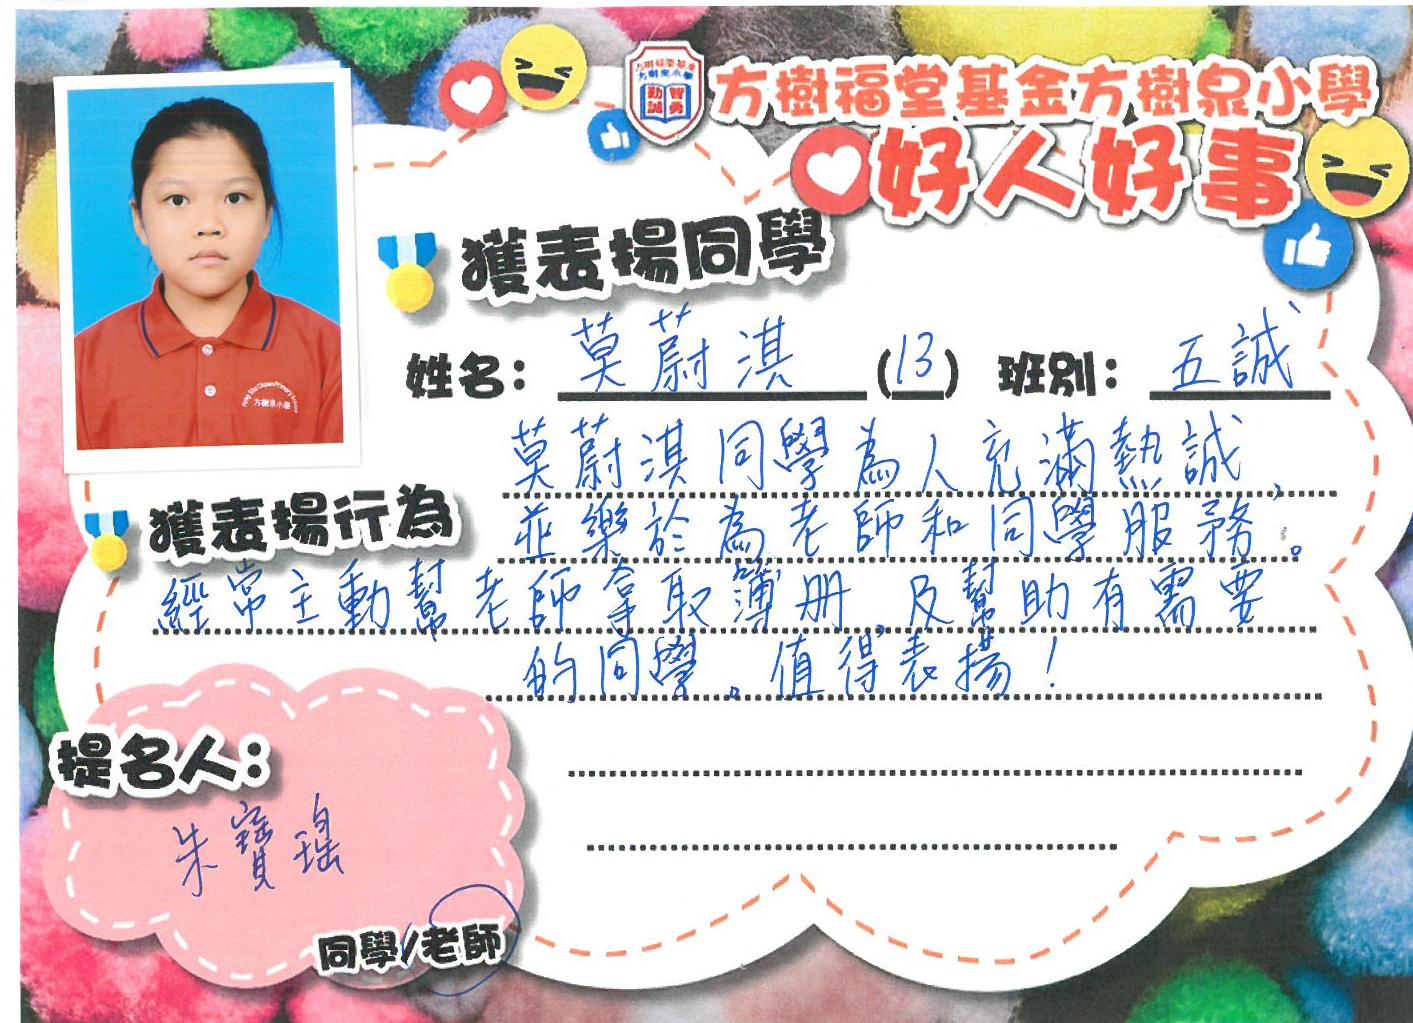 方樹福堂基金方樹泉小學
方樹福堂基金
方樹泉小學
勤智
誠勇
好人好事
獲表揚同學
姓名： 莫蔚淇 (13) 班別： 五誠
方樹泉小學
莫蔚淇同學為人充滿熱誠，
獲表揚行為
並樂於為老師和同學服務。
經常主動幫老師拿取簿冊，及幫助有需要
的同學。值得表揚！
提名人：
朱寶瑤
同學/老師